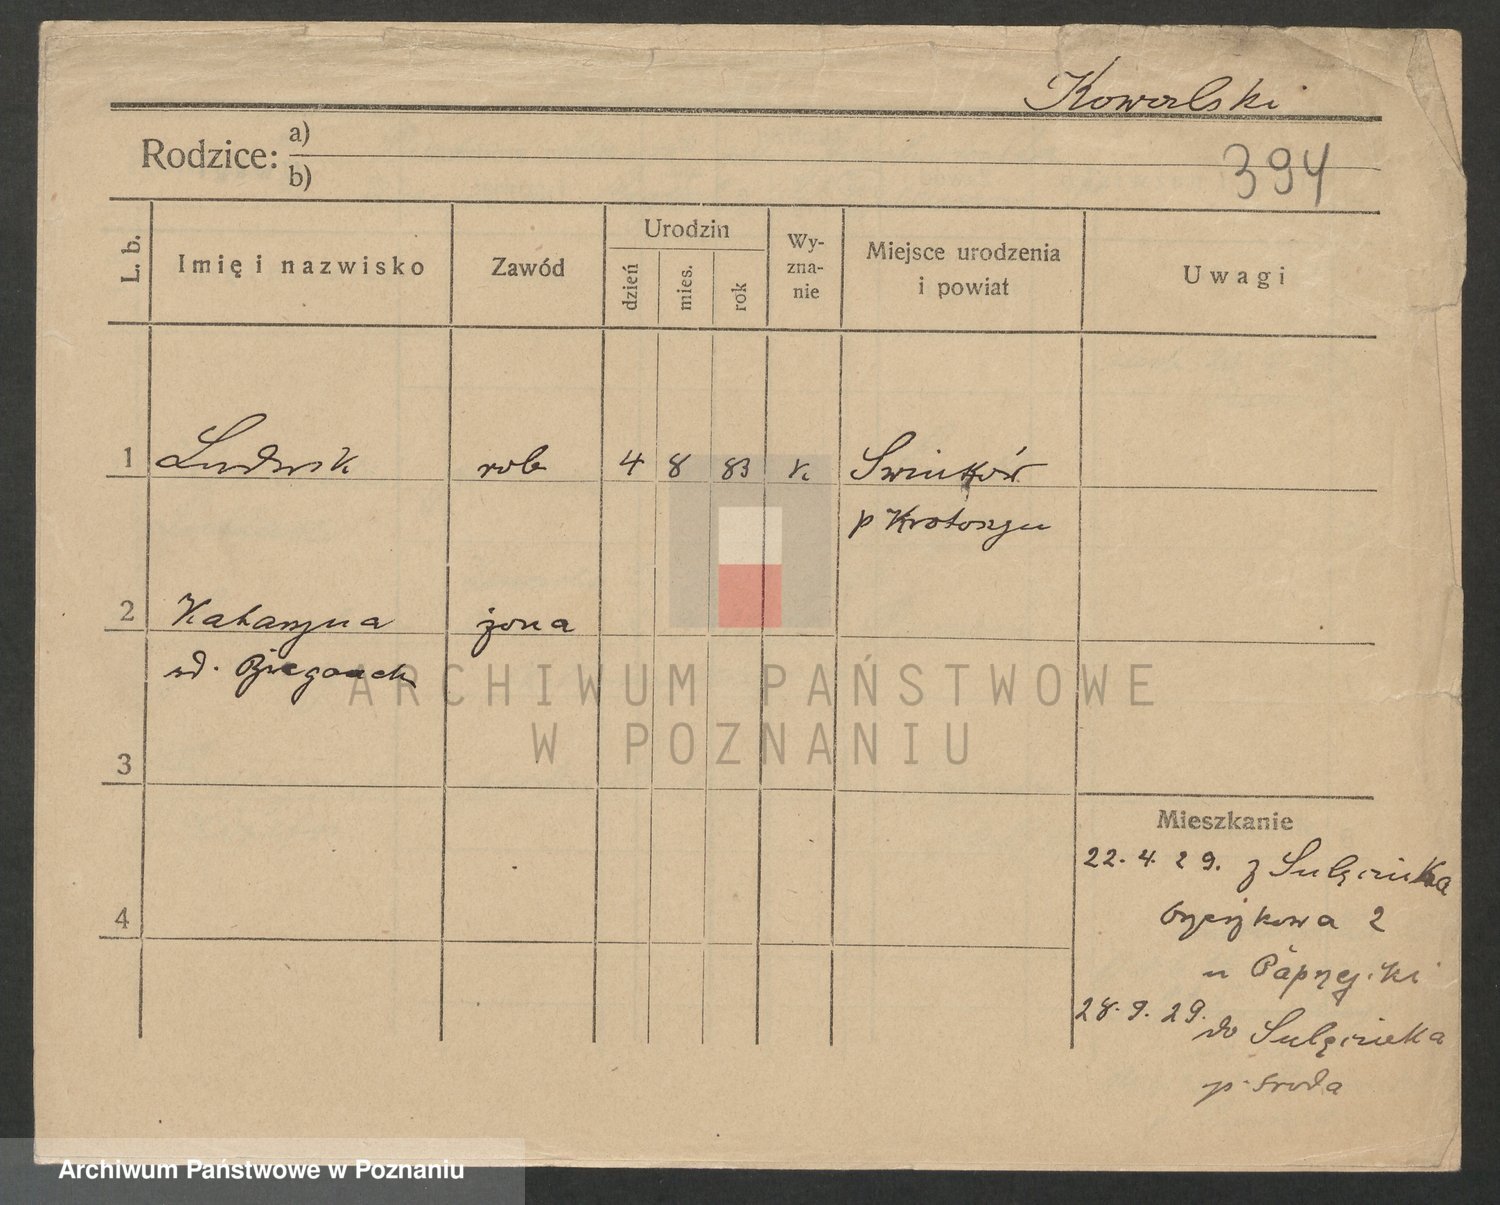 Kowalski
Rodzice: a)
b)
394
L. b.
Imię i nazwisko
Zawód
Urodzin
dzień
mies.
rok
Wy-
zna-
nie
Miejsce urodzenia
i powiat
Uwagi
1 Ludwik rob 4 8 83 k Swinków
p Krotoszyn
2 Katarzyna żona
3
ARCHIWUM PAŃSTWOWE
W POZNANIU
4
Mieszkanie
22. 4. 29. z Sulęcinka
2
u
28. 9. 29. do Sulęcinka
p. Sroda
Archiwum Państwowe w Poznaniu